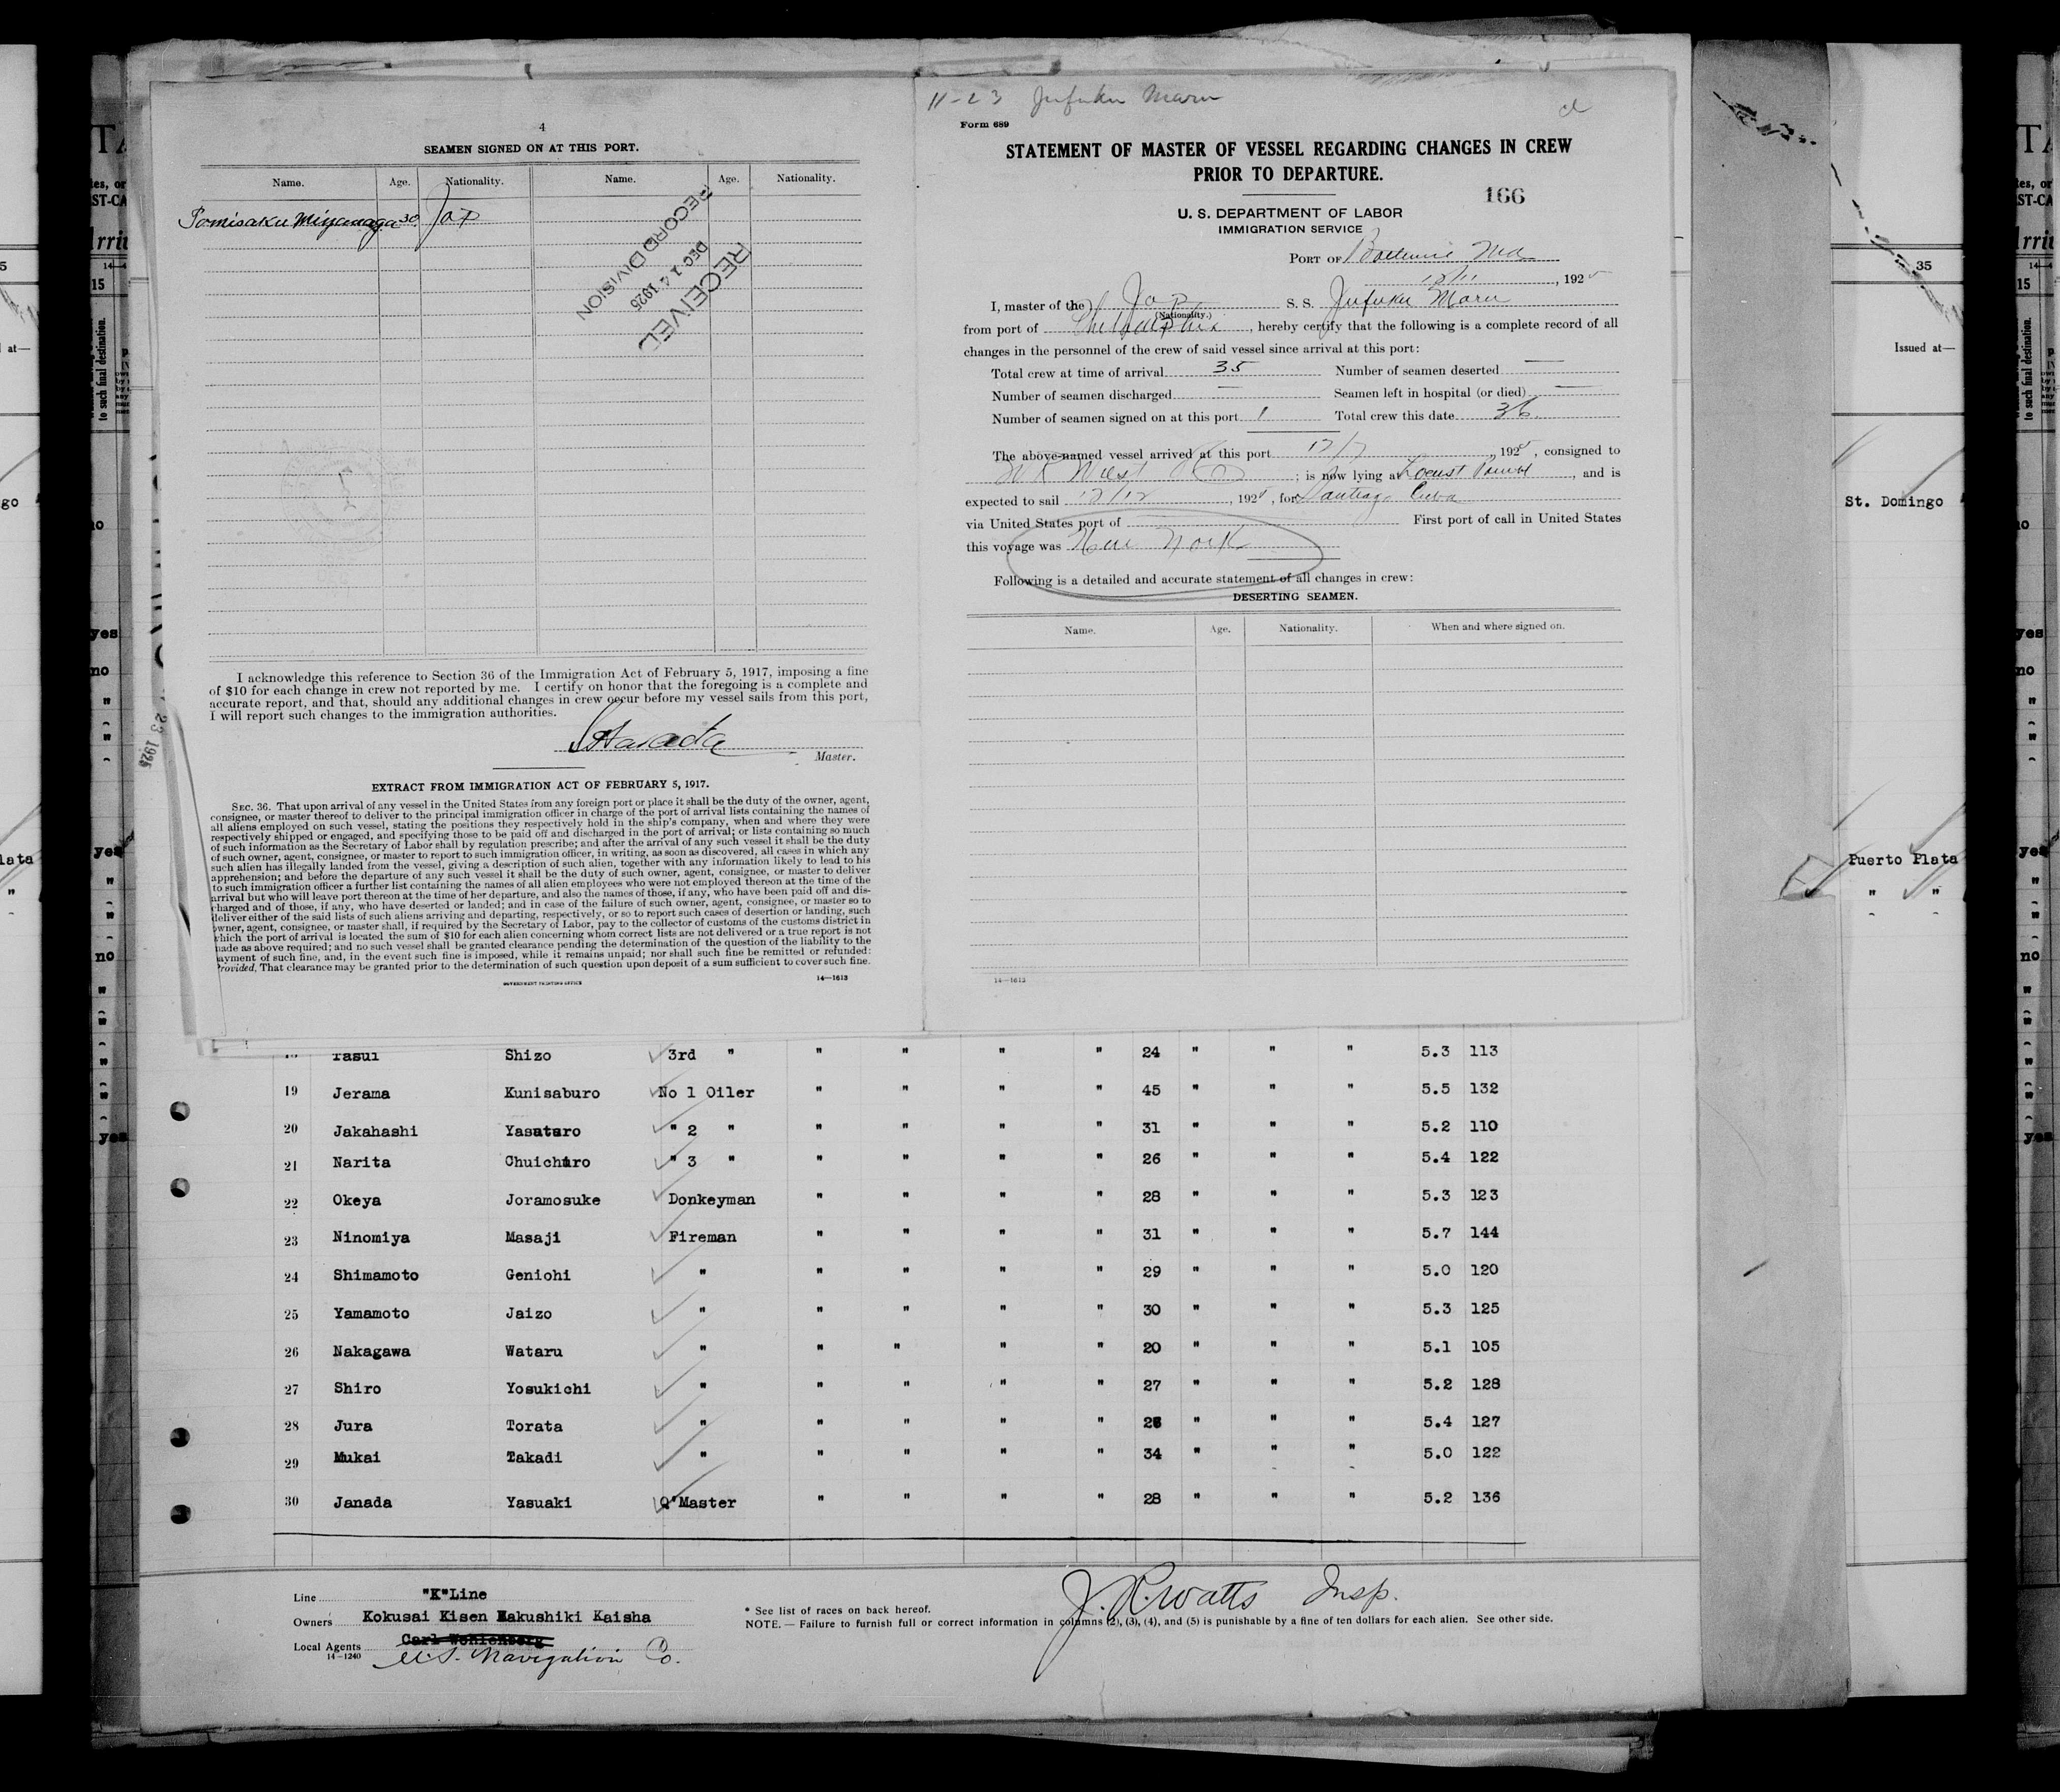 4
SEAMEN SIGNED ON AT THIS PORT.
Name. Age. Nationality. Name. Age. Nationality.
Tomisaku Miyanaga 30. Jap
RECEIVED
DEC 14 1925
RECORD DIVISION
I acknowledge this reference to Section 36 of the Immigration Act of February 5, 1917, imposing a fine
of $10 for each change in crew not reported by me. I certify on honor that the foregoing is a complete and
accurate report, and that, should any additional changes in crew occur before my vessel sails from this port,
I will report such changes to the immigration authorities.
Master.
EXTRACT FROM IMMIGRATION ACT OF FEBRUARY 5, 1917.
SEC. 36. That upon arrival of any vessel in the United States from any foreign port or place it shall be the duty of the owner, agent,
consignee, or master thereof to deliver to the principal immigration officer in charge of the port of arrival lists containing the names of
all aliens employed on such vessel, stating the positions they respectively hold in the ship's company, when and where they were
respectively shipped or engaged, and specifying those to be paid off and discharged in the port of arrival; or lists containing so much
of such information as the Secretary of Labor shall by regulation prescribe; and after the arrival of any such vessel it shall be the duty
of such owner, agent, consignee, or master to report to such immigration officer, in writing, as soon as discovered, all cases in which any
such alien has illegally landed from the vessel, giving a description of such alien, together with any information likely to lead to his
apprehension; and before the departure of any such vessel it shall be the duty of such owner, agent, consignee, or master to deliver
to such immigration officer a further list containing the names of all alien employees who were not employed thereon at the time of the
arrival but who will leave port thereon at the time of her departure, and also the names of those, if any, who have been paid off and dis-
charged and of those, if any, who have deserted or landed; and in case of the failure of such owner, agent, consignee, or master so to
deliver either of the said lists of such aliens arriving and departing, respectively, or so to report such cases of desertion or landing, such
owner, agent, consignee, or master shall, if required by the Secretary of Labor, pay to the collector of customs of the customs district in
which the port of arrival is located the sum of $10 for each alien concerning whom correct lists are not delivered or a true report is not
made as above required; and no such vessel shall be granted clearance pending the determination of the question of the liability to the
ayment of such fine, and, in the event such fine is imposed, while it remains unpaid; nor shall such fine be remitted or refunded:
Provided, That clearance may be granted prior to the determination of such question upon deposit of a sum sufficient to cover such fine.
GOVERNMENT PRINTING OFFICE 14—1613
11-23 Jufuku Maru
Form 689
STATEMENT OF MASTER OF VESSEL REGARDING CHANGES IN CREW
PRIOR TO DEPARTURE.
166
U. S. DEPARTMENT OF LABOR
IMMIGRATION SERVICE
PORT OF Baltimore Md
12/11, 1925
I, master of the Jap S. S. Jufuku Maru
(Nationality.)
from port of Philadelphia, hereby certify that the following is a complete record of all
changes in the personnel of the crew of said vessel since arrival at this port:
Total crew at time of arrival 35 Number of seamen deserted —
Number of seamen discharged — Seamen left in hospital (or died) —
Number of seamen signed on at this port 1 Total crew this date 36
The above-named vessel arrived at this port 12/7, 1925, consigned to
; is now lying at Locust Point, and is
expected to sail 12/12, 1925, for Santiago Cuba
via United States port of First port of call in United States
this voyage was New York
Following is a detailed and accurate statement of all changes in crew:
DESERTING SEAMEN.
Name. Age. Nationality. When and where signed on.
14—1613
Yasui Shizo 3rd " " " " " 24 " " " 5.3 113
19 Jerama Kunisaburo No 1 Oiler " " " " 45 " " " 5.5 132
20 Jakahashi Yasataro " 2 " " " " " 31 " " " 5.2 110
21 Narita Chuichiro " 3 " " " " " 26 " " " 5.4 122
22 Okeya Joramosuke Donkeyman " " " " 28 " " " 5.3 123
23 Ninomiya Masaji Fireman " " " " 31 " " " 5.7 144
24 Shimamoto Geniohi " " " " " 29 " " " 5.0 120
25 Yamamoto Jaizo " " " " " 30 " " " 5.3 125
26 Nakagawa Wataru " " " " " 20 " " " 5.1 105
27 Shiro Yosukichi " " " " " 27 " " " 5.2 128
28 Jura Torata " " " " " 26 " " " 5.4 127
29 Mukai Takadi " " " " " 34 " " " 5.0 122
30 Janada Yasuaki Q'Master " " " " 28 " " " 5.2 136
Line "K"Line
Owners Kokusai Kisen Kakushiki Kaisha
Local Agents Carl Wohlenberg
14—1240 U.S. Navigation Co.
J. R. Watts Insp.
* See list of races on back hereof.
NOTE.—Failure to furnish full or correct information in columns (2), (3), (4), and (5) is punishable by a fine of ten dollars for each alien. See other side.
35
Issued at—
St. Domingo
Puerto Plata
" "